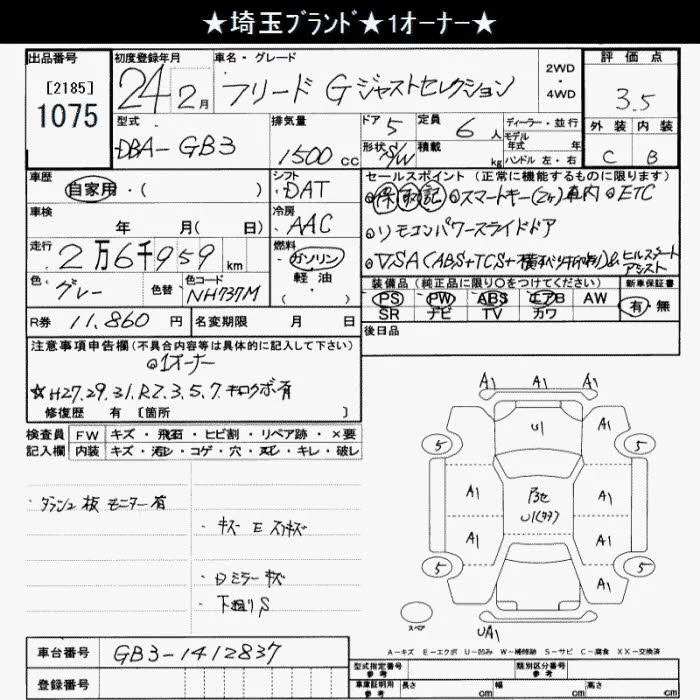 ★埼玉ブランド★1オーナー★
出品番号 初度登録年月 車名・グレード 評価点
[2185]
1075
24年 2月 フリード G ジャストセレクション 2WD・4WD 3.5
型式 排気量 ドア 5 定員 6 人 ディーラー・並行 外装 内装
DBA-GB3 1500 cc 形状 S/W 積載 kg モデル年式 年 ハンドル 左・右 C B
車歴 シフト セールスポイント (正常に機能するものに限ります)
自家用・( ) DAT 保 取 記 ◎スマートキー(2ヶ)車内 ◎ETC
車検 冷房
年 月( 日) AAC ◎リモコンパワースライドドア
走行 燃料
2万6千959km ガソリン 軽油 ( ) ◎VSA(ABS+TCS+横スベリ抑制)& ヒルスタートアシスト
色 色替 色コード 装備品 (純正品に限り○をつけてください) 新車保証書
グレー NH737M PS PW ABS エアB AW 有・無
SR ナビ TV カワ
R券 11,860 円 名変期限 月 日 後日品
注意事項申告欄 (不具合内容等は具体的に記入して下さい)
◎1オーナー
☆H27.29.31.R2.3.5.7.キロクボ有
修復歴 有 〔箇所 〕
検査員 FW キズ・飛石・ヒビ割・リペア跡・×要
記入欄 内装 キズ・汚レ・コゲ・穴・スレ・キレ・破レ
・ダッシュ板 モニター有
・キズ E スリキズ
・ロミラーキズ
・下廻りS
A1 A1 A1
U1 A1
5 5
A1 A1
A1 A1
5 5
A1
UA1
スペア
A-キズ E-エクボ U-凹み W-補修跡 S-サビ C-腐食 XX-交換済
車台番号 GB3-1412837
登録番号
型式指定番号 参考 類別区分番号 参考
車庫証明用 参考 長さ cm 幅 cm 高さ cm